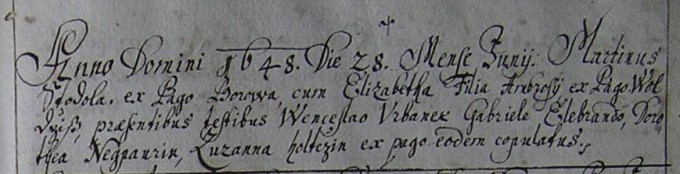 Anno Domini 1648. Die 28. Mense Junij. Martinus
Stodola. ex Pago Borowa, cum Elizabetha Filia Ambrosij ex Pago Wol
dřiß, præsentibus testibus Wenceslao Vrbanek Gabriele Elebrando, Doro
thea Negpaurin, Zuzanna holtzin ex pago eodem copulatus.